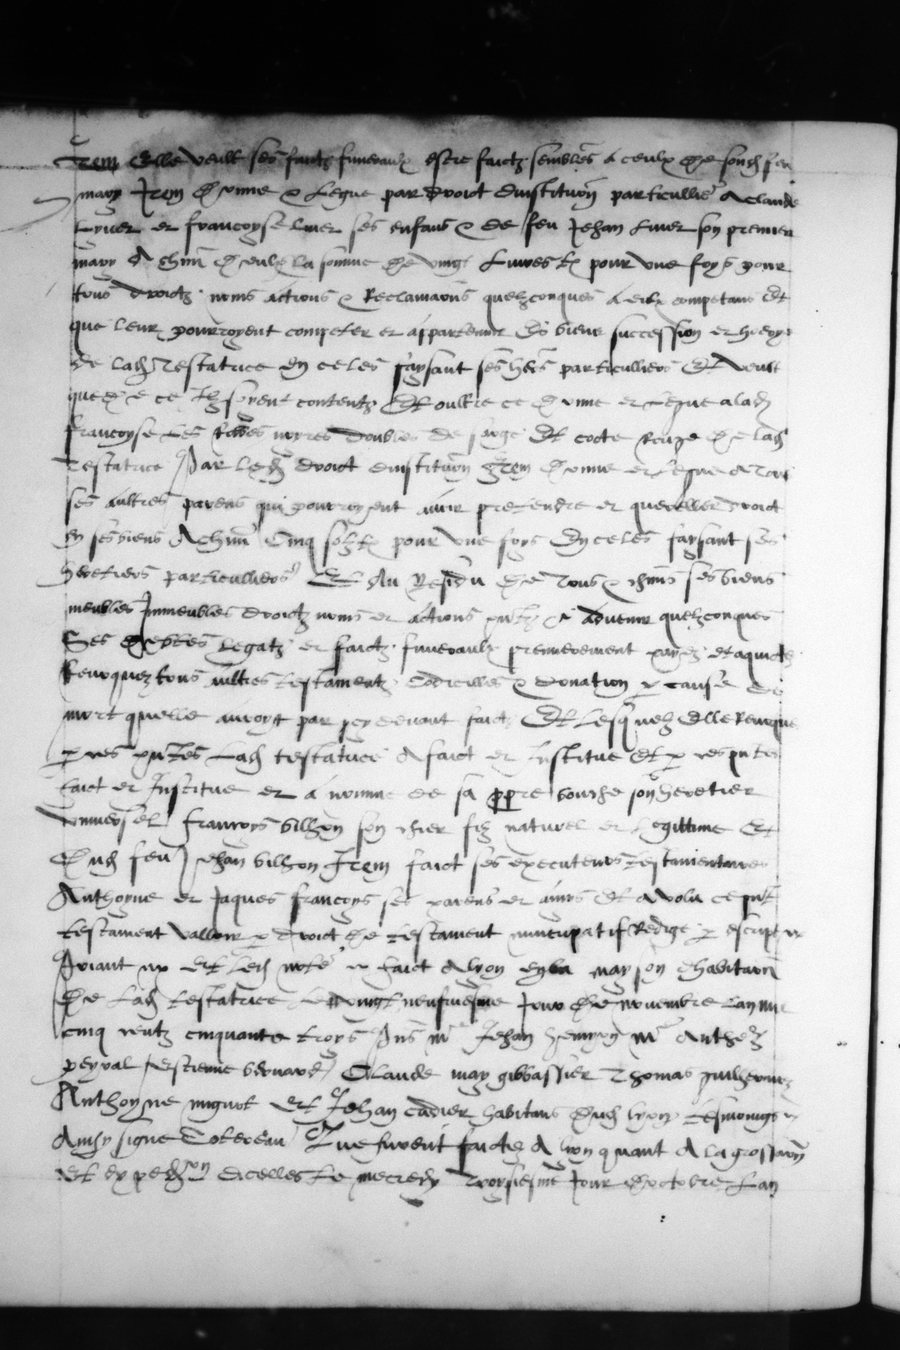 Item Elle veult ses faictz funeraulx estre faictz semblés a ceulx de sond feu
mary Item donne & legue par droict dinstitution particullie a claude
Lyver et francoyse liver ses enfans & de feu Jehan liver son premier
mary A chun deulx la somme de vingt livres tz pour une foys pour
tous droictz noms actions & Reclamaons quelzconques a eulx competans Et
que leur pourroyent competer et appartenir es biens succession et hoyrye
de lad Testatrice En ce les faysant ses hers particulliers Et veult
que de ce Ilz soyent contentz Et oultre ce donne et legue a lad
francoyse les Robbes noyres doubles de sarge Et cotte Rouge de lad
Testatrice Par led droict dinstitution Item donne et legue A tous
ses aultres parens qui pourroyent avoir pretendre et quereller droict
En ses biens A chun Cinq solz tz pour une foys En ce les faysant ses
heretiers particulliers Et Au Residu de tous & chuns ses biens
meubles Immeubles droictz noms et actions pntz & advenir quelzconques
Ses debtes legatz et faictz funeraulx premierement payez et aquictez
Revoquez tous aultres testamentz Codicilles & donation p cause de
mort quelle auroyt par cy devant faictz Et lesquelz Elle Revoque
p ces pntes lad testatrice A faict et Institue Et p ces pntes
faict et Institue et a nomme de sa ppre bouche son heretier
universel francoys billion son chier filz naturel et legittime Et
dud feu Jehan billion Item faict ses executeurs testamentaires
Anthoyne et Jaques francoys ses parens et amys Et a volu ce pnt
testament valloir p droict de testament nuncupatif Redige p escript
Priant Et led note faict A lyon En la mayson dhabitaon
de lad testatrice le vingt neufviesme Jour de novembre Lan mil
cinq centz cinquante troys Pns Mc Jehan Mc Anthoe
peyral Estienne bernard Claude may gibbassier Thomas
Anthoyne mignot Et Jehan cadier habitans dud lyon Tesmoings
Ainsy signe Cotereau Lue furent faictz A lyon quant A la grossaon
Et expedon dicelles le mecredy Troysiesme Jour doctobre Lan